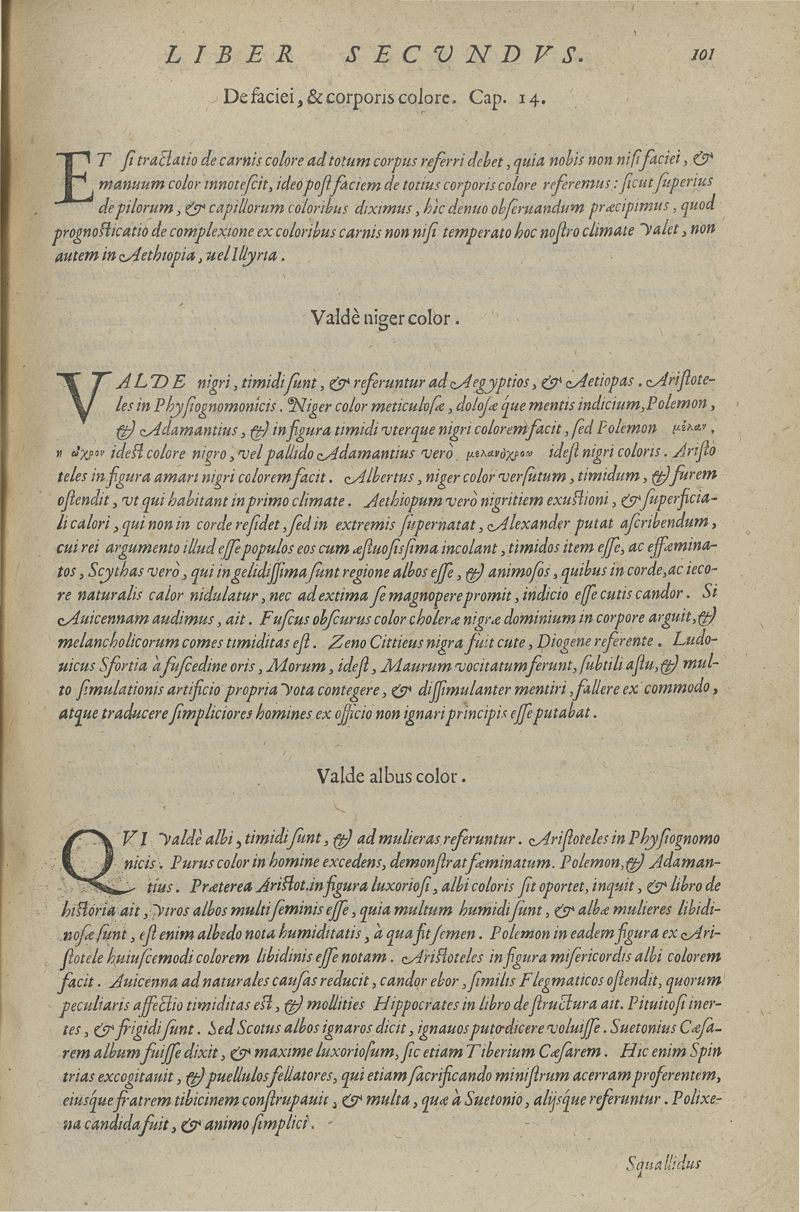 LIBER SECVNDVS. 101
De faciei, & corporis colore. Cap. 14.
ET si tractatio de carnis colore ad totum corpus referri debet, quia nobis non nisi faciei, &
manuum color innotescit, ideo post faciem de totius corporis colore referemus: sicut superius
de pilorum, & capillorum coloribus diximus, hic denuo obseruandum præcipimus, quod
prognosticatio de complexione ex coloribus carnis non nisi temperato hoc nostro climate valet, non
autem in Aethiopia, uel Illyria.
Valdè niger color.
VALDE nigri, timidi sunt, & referuntur ad Aegyptios, & Aetiopas. Aristote-
les in Physiognomonicis. Niger color meticulosæ, dolosæ que mentis indicium, Polemon,
& Adamantius, & in figura timidi vterque nigri colorem facit, sed Polemon μέλαν,
η ὠχρον idest colore nigro, vel pallido Adamantius vero μελανόχροον idest nigri coloris. Aristo
teles in figura amari nigri colorem facit. Albertus, niger color versutum, timidum, & furem
ostendit, vt qui habitant in primo climate. Aethiopum verò nigritiem exustioni, & superficia-
li calori, qui non in corde residet, sed in extremis supernatat, Alexander putat ascribendum,
cui rei argumento illud esse populos eos cum æstuosissima incolant, timidos item esse, ac effœmina-
tos, Scythas verò, qui in gelidissima sunt regione albos esse, & animosos, quibus in corde, ac ieco-
re naturalis calor nidulatur, nec ad extima se magnopere promit, indicio esse cutis candor. Si
Auicennam audimus, ait. Fuscus obscurus color choleræ nigræ dominium in corpore arguit, &
melancholicorum comes timiditas est. Zeno Cittieus nigra fuit cute, Diogene referente. Ludo-
uicus Sfortia à fuscedine oris, Morum, idest, Maurum vocitatum ferunt, subtili astu, & mul-
to simulationis artificio propria vota contegere, & dissimulanter mentiri, fallere ex commodo,
atque traducere simpliciores homines ex officio non ignari principis esse putabat.
Valde albus color.
QVI valdè albi, timidi sunt, & ad mulieras referuntur. Aristoteles in Physiognomo
nicis. Purus color in homine excedens, demonstrat fæminatum. Polemon, & Adaman-
tius. Præterea Aristot. in figura luxoriosi, albi coloris sit oportet, inquit, & libro de
historia ait, viros albos multi seminis esse, quia multum humidi sunt, & albæ mulieres libidi-
nosæ sunt, est enim albedo nota humiditatis, à qua fit semen. Polemon in eadem figura ex Ari-
stotele huiuscemodi colorem libidinis esse notam. Aristoteles in figura misericordis albi colorem
facit. Auicenna ad naturales causas reducit, candor ebor, similis Flegmaticos ostendit, quorum
peculiaris affectio timiditas est, & mollities Hippocrates in libro de structura ait. Pituitosi iner-
tes, & frigidi sunt. Sed Scotus albos ignaros dicit, ignauos puto dicere voluisse. Suetonius Cæsa-
rem album fuisse dixit, & maxime luxoriosum, sic etiam Tiberium Cæsarem. Hic enim Spin
trias excogitauit, & puellulos fellatores, qui etiam sacrificando ministrum acerram proferentem,
eiusque fratrem tibicinem construpauit, & multa, quæ à Suetonio, alijsque referuntur. Polixe-
na candida fuit, & animo simplici.
Squallidus